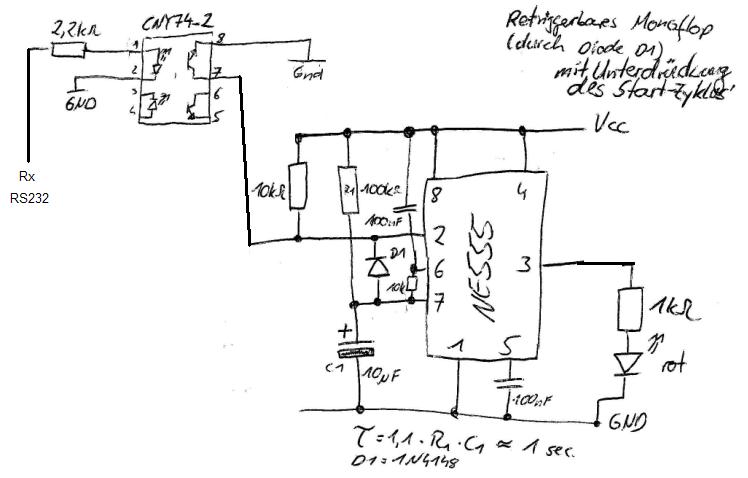 CNY74-2
Retriggerbares Monoflop
(durch Diode D1)
mit Unterdrückung
des Start-Zyklus'
2,2kΩ
1
8
2
7
3
6
4
5
Gnd
GND
Rx
RS232
Vcc
10kΩ
R1
100kΩ
100nF
8
4
2
D1
6
10k
7
NE555
3
1kΩ
rot
1
5
+
C1
10µF
100nF
GND
τ = 1,1 · R1 · C1 ≈ 1 sec.
D1 = 1N4148